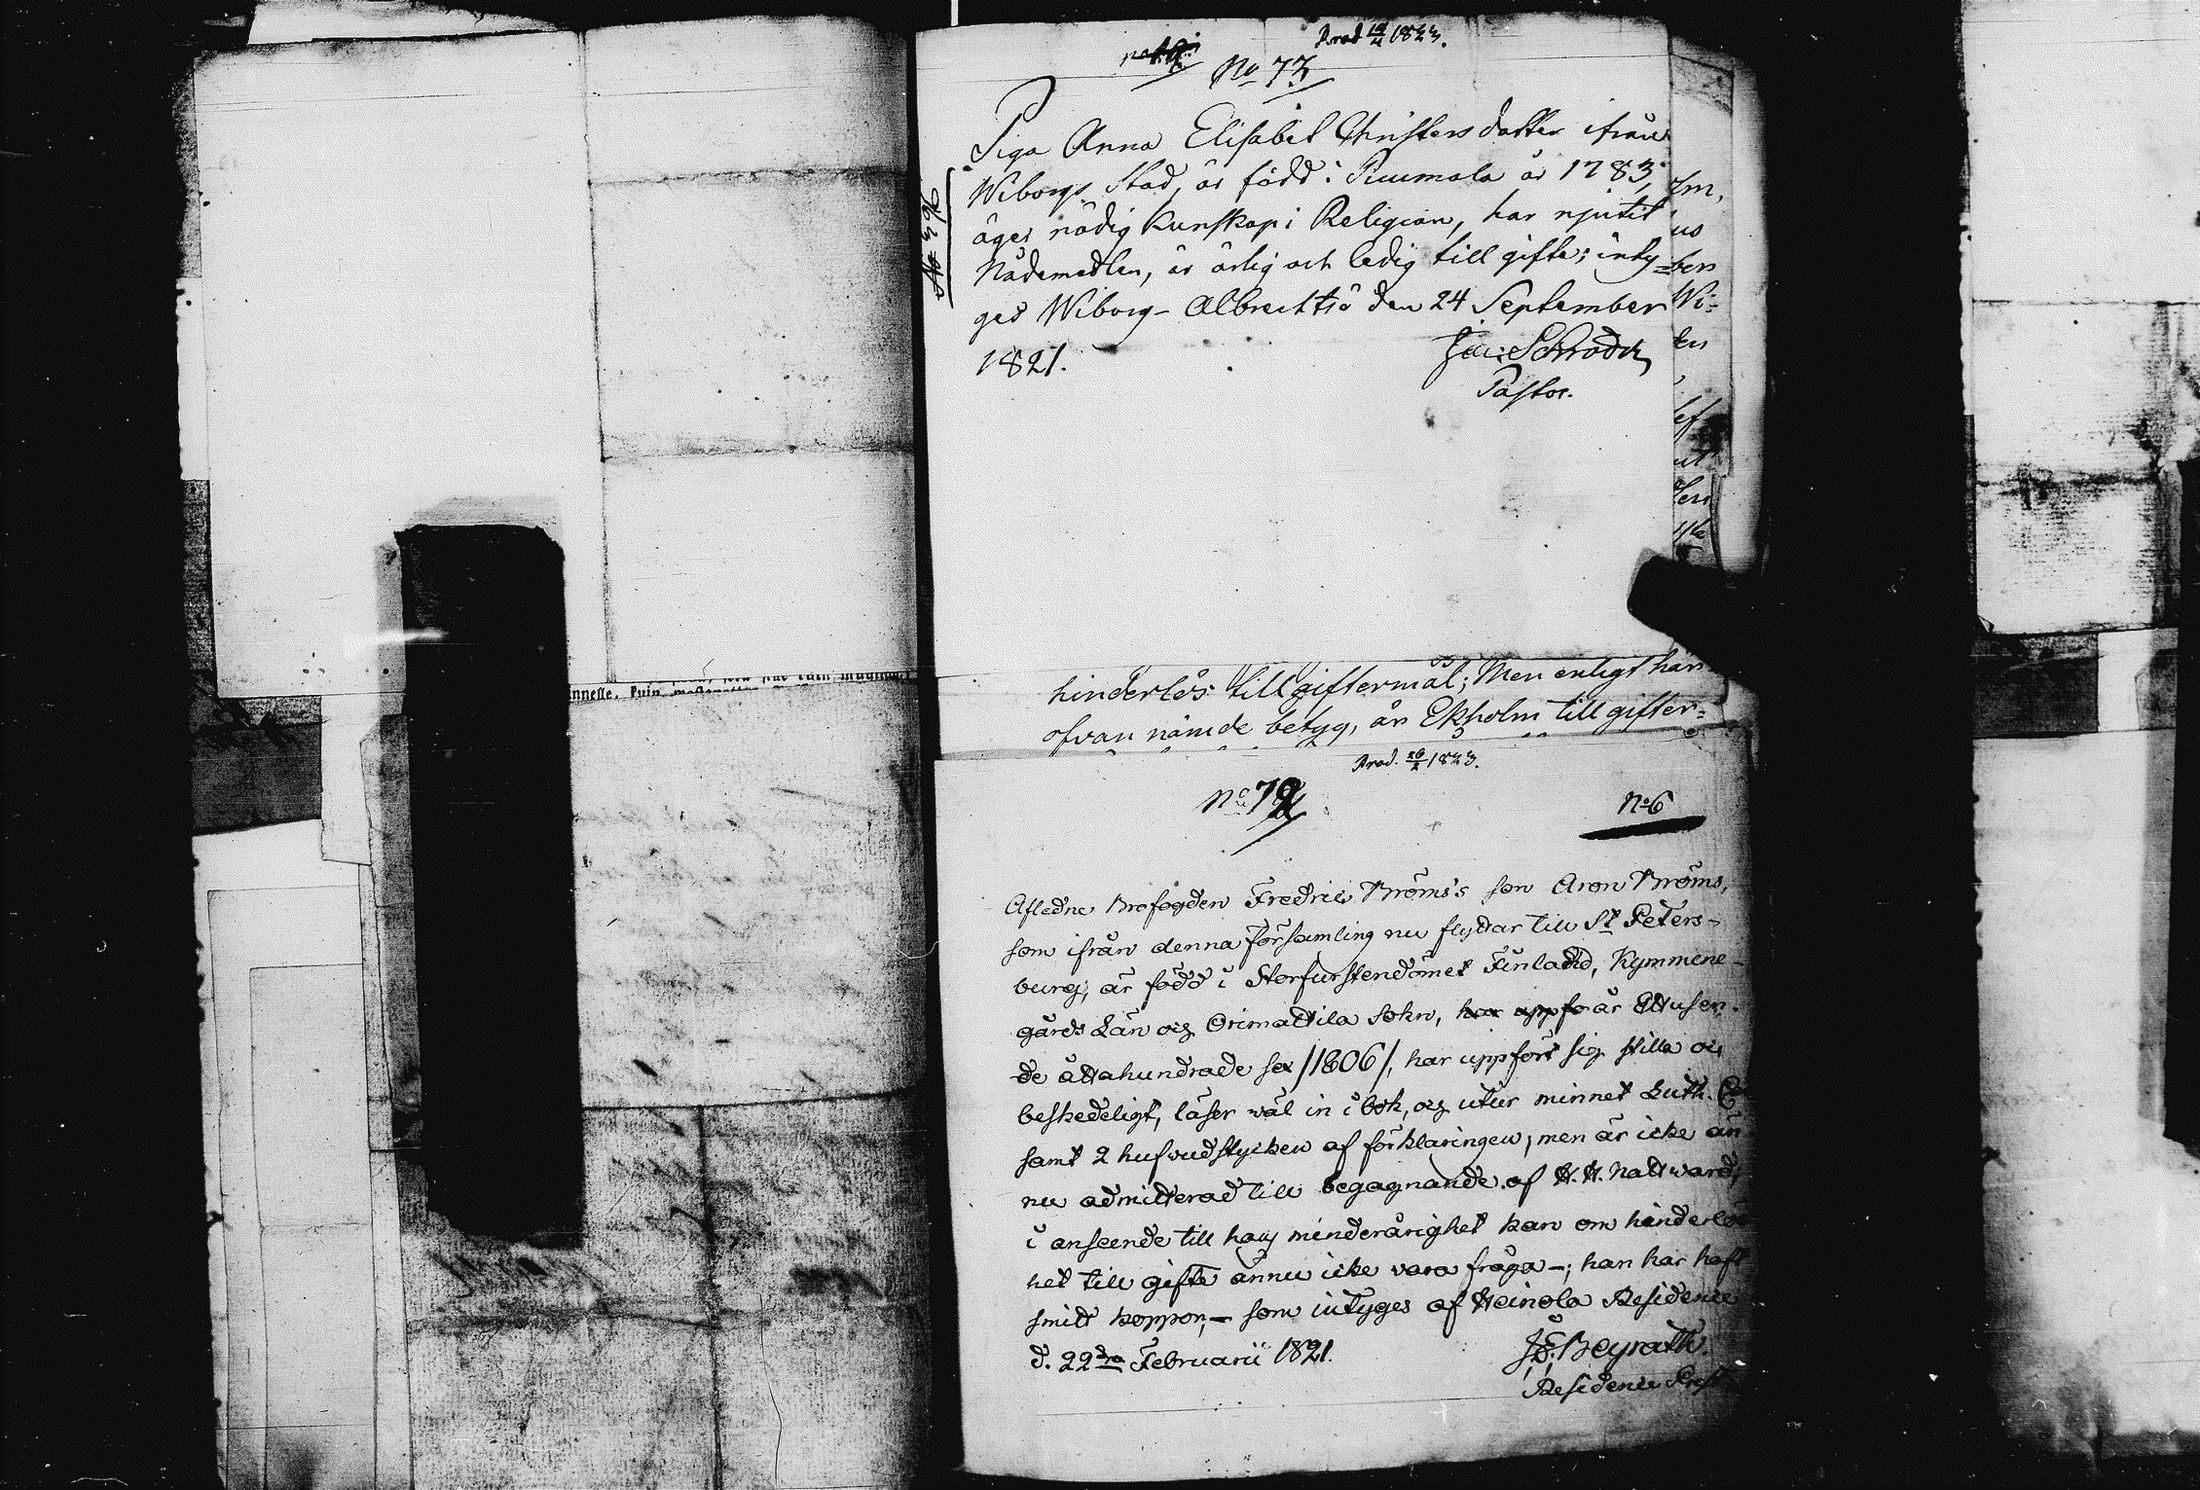 Prod 1823.
No 73
No 396
Piga Anna Elisabet Christersdotter ifrån
Wiborgs Stad, är född i Puumala år 1783,
äger nödig kunskap i Religion, har njutit
Nådemedlen, är ärlig och ledig till gifte; inty-
ges Wiborg - Albrechtsö den 24 September
1821.
Schröder
Pastor.
innesse, kuin
hinderlös till giftermål; Men enligt hans
ofvan nämde betyg, är Ekholm till gifter=
Prod. 26/2 1823.
No 72
No 6
Afledne Brofogden Fredric Bröms's son Aron Bröms,
som ifrån denna församling nu flyttar till St Peters-
burg, är född i Storfurstendömet Finland, Kymmene-
gårds Län och Orimattila Sokn, har uppfo år Ettusen-
de åttahundrade sex /1806/, har uppfört sig stilla och
beskedeligt, läser wäl in i bok, och utur minnet Luth. 
samt 2 hufvudstycken af förklaringen; men är icke än
nu admitterad till begagnande af H. H. Nattward;
i anseende till hans minderårighet kan om hinderlös
het till gifte ännu icke vara fråga -; han har haft
smitt koppor; - som intyges af Heinola Residence
d. 22dra Februarii 1821.
Beyrath.
Residence